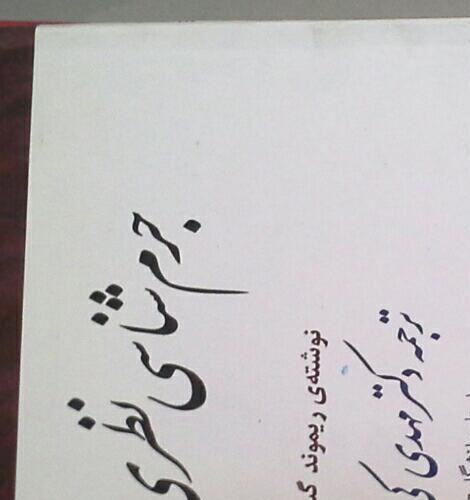 جرم شناسی نظری
نوشته‌ی ریموند
ترجمه دکتر مهدی